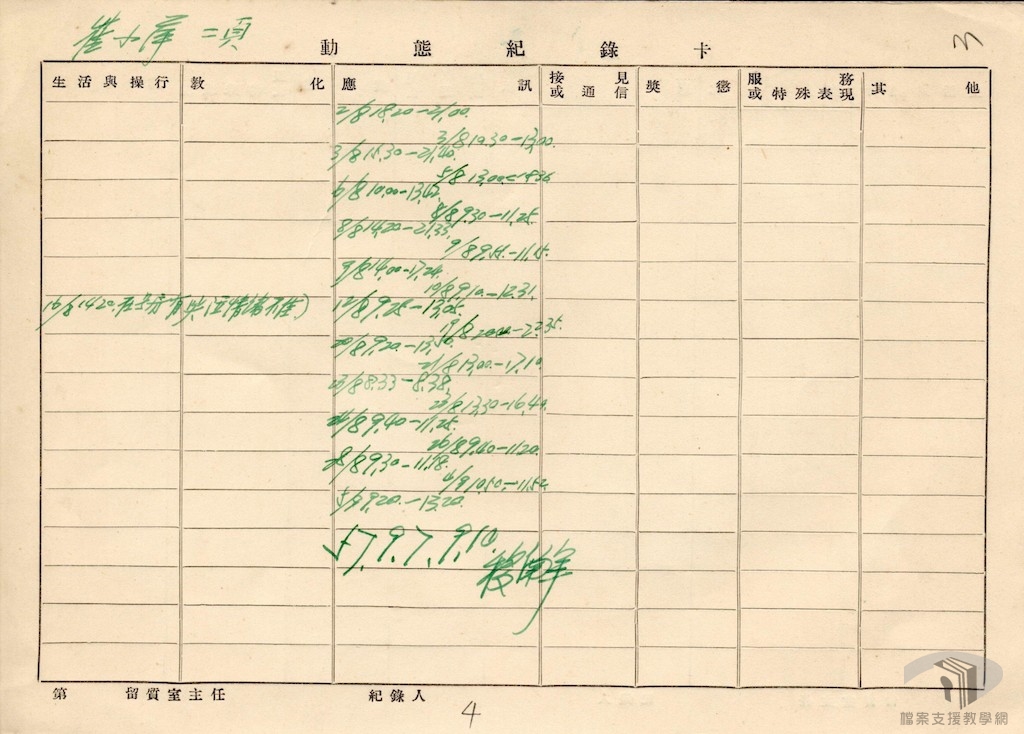 崔小萍 二頁
動態紀錄卡
3
生活與操行 教化 應訊 接見或通信 獎懲 服務或特殊表現 其他
2/8 18,20-21,00.
3/8 10.30-13,00.
3/8 15,30-21,40.
5/8 13,00-
6/8 10,00-13,42.
8/8 9.30-11,25.
8/8 14,20-21,35.
9/8 9,55.-11,15.
9/8 14,00-17,24.
10/8 9,10.-12.31.
16/8 1420.
12/8 9,25-13,05.
19/8 -22,35.
20/8 9,20.-13,50.
21/8 13,00.-17,10.
23/8 8.33-8,38,
23/8 13,30-16,40.
24/8 9,40-11,25.
26/8 9,40-1120.
28/8 9,30-11,18.
4/9 10,50.-11,52.
5/9 9,20.-13,20.
57,9,7,9,10.
第 留質室主任 紀錄人
4
檔案支援教學網